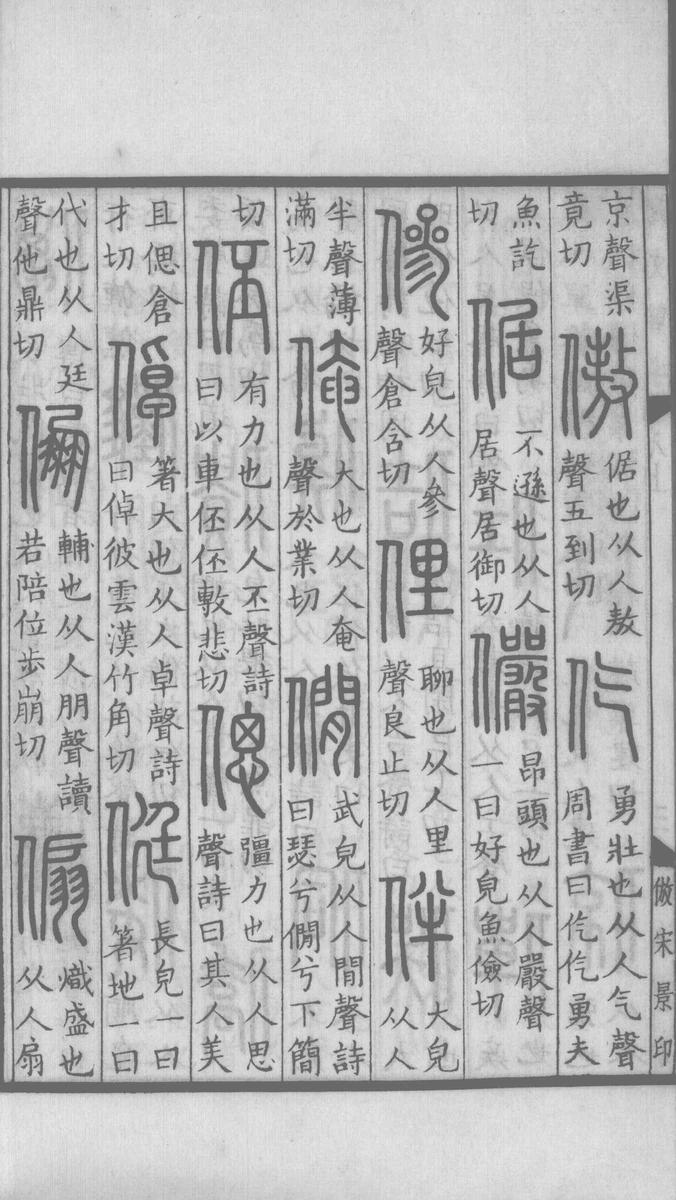 京聲渠竟切傲倨也从人敖聲五到切仡勇壯也从人气聲周書曰仡仡勇夫
魚訖切倨不遜也从人居聲居御切儼昂頭也从人嚴聲一曰好皃魚儉切
傪好皃从人參聲倉含切俚聊也从人里聲良止切伴大皃从人
半聲薄滿切俺大也从人奄聲於業切僩武皃从人閒聲詩曰瑟兮僩兮下簡
切伾有力也从人丕聲詩曰以車伾伾敷悲切偲彊力也从人思聲詩曰其人美
且偲倉才切倬箸大也从人卓聲詩曰倬彼雲漢竹角切侹長皃一曰箸地一曰
代也从人廷聲他鼎切倗輔也从人朋聲讀若陪位步崩切傓熾盛也从人扇
倣宋景印